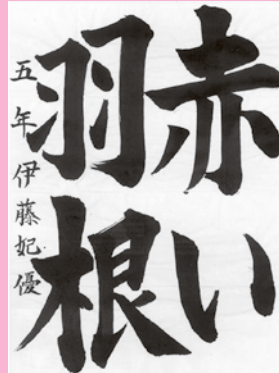 赤い
羽根
五年 伊藤妃優